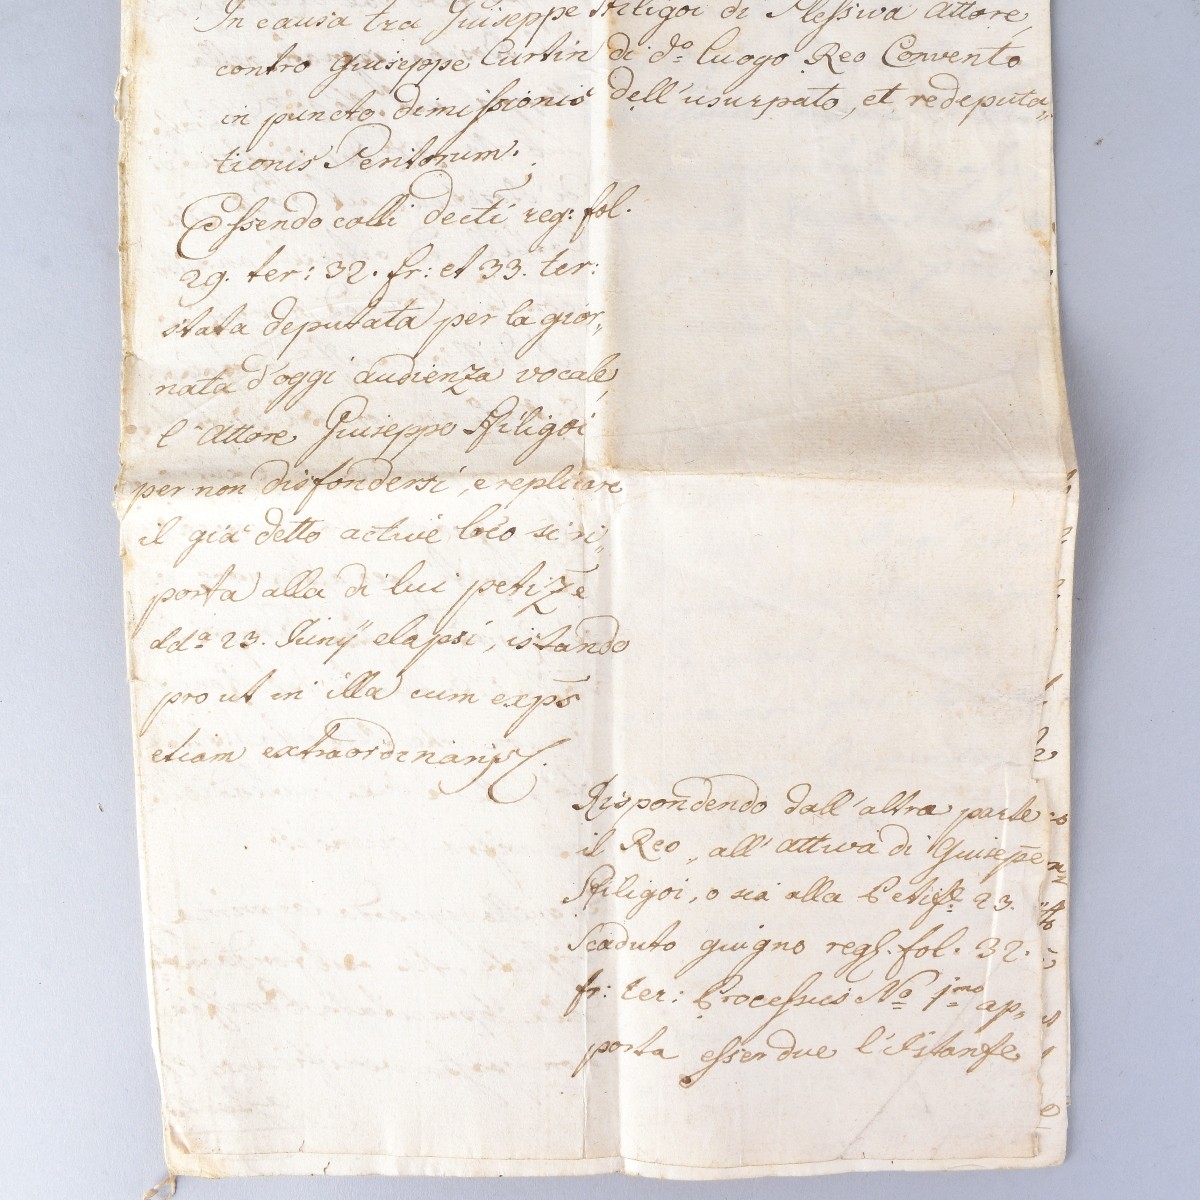 In causa tra Giuseppe Stiligoi di Plessiva Attore,
contro Giuseppe Curtin di dº luogo Reo Convento
in puncto dimissionis dell'usurpato, et redeputa„
tionis Peritorum.
Essendo colli decti reg: fol.
29. ter: 32. fr: et 33. ter:
stata deputata per la gior„
nata d'oggi audienza vocale,
l'Attore Giuseppe Stiligoi
per non disfondersi, e replicare
il già detto active loco si ri„
porta alla di lui petizē
ddª 23. Junij elapsi, istando
pro ut in illa cum exps̄
etiam extraordinarijs.
Rispondendo dall'altra parte
il Reo, all'attiva di Giusep̄e
Stiligoi, o sia alla Petiz. 23.
Scaduto giugno reg. fol. 32.
fr: ter: Processus Nº 1mo ap„
porta esser due l'Istanze